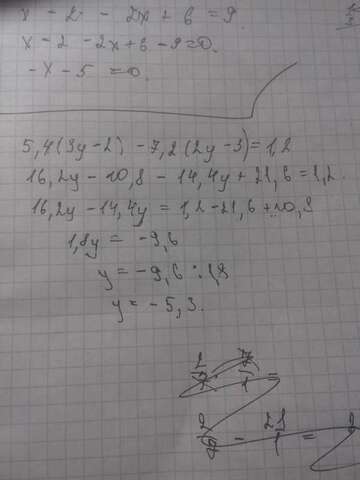 x - 2 - 2x + 6 = 9
x - 2 - 2x + 6 - 9 = 0.
- x - 5 = 0.
5,4(3y-2) - 7,2(2y-3) = 1,2
16,2y - 10,8 - 14,4y + 21,6 = 1,2.
16,2y - 14,4y = 1,2 - 21,6 + 10,8
1,8y = - 9,6
y = - 9,6 : 1,8
y = - 5,3.